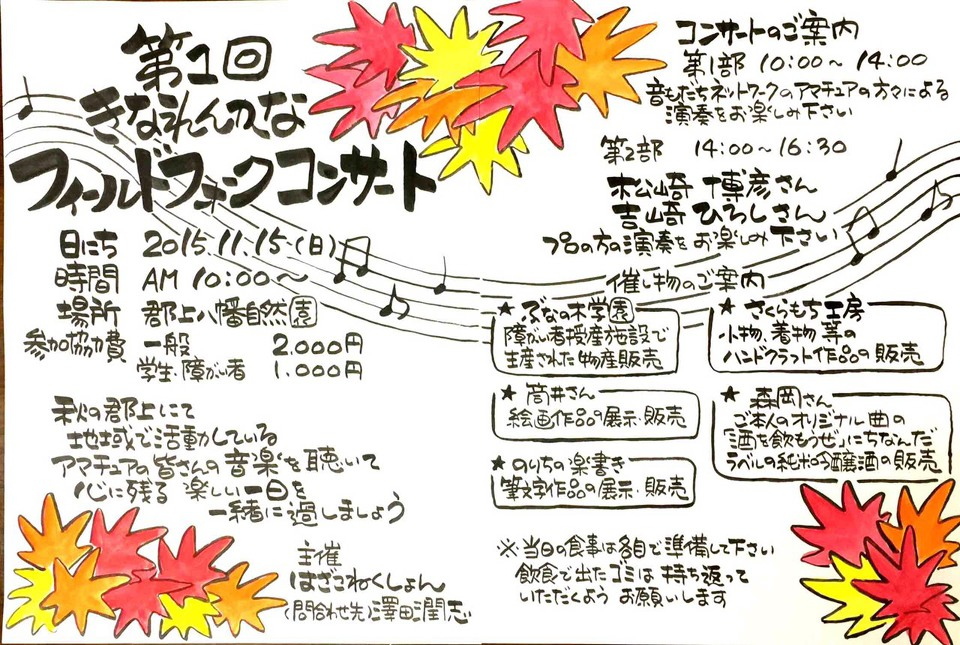 第1回
きなれんかな
フィールドフォークコンサート
日にち 2015.11.15(日)
時間 AM 10:00〜
場所 郡上八幡自然園
参加協力費 一般 2.000円
学生・障がい者 1.000円
秋の郡上にて
地域で活動している
アマチュアの皆さんの音楽を聴いて
心に残る楽しい一日を
一緒に過しましょう
主催
はざこねくしょん
(問合わせ先)澤田潤志
コンサートのご案内
第1部 10:00〜14:00
音もだちネットワークのアマチュアの方々による
演奏をお楽しみ下さい
第2部 14:00〜16:30
松崎博彦さん
吉崎ひろしさん
プロの方の演奏をお楽しみ下さい
催し物のご案内
★ぶなの木学園
障がい者授産施設で
生産された物産販売
★筒井さん
絵画作品の展示・販売
★のりちの楽書き
筆文字作品の展示・販売
★さくらもち工房
小物、着物等の
ハンドクラフト作品の販売
★森岡さん
ご本人のオリジナル曲の
「酒を飲もうぜ」にちなんだ
ラベルの純米吟醸酒の販売
※当日の食事は各自で準備して下さい
飲食で出たゴミは持ち返って
いただくようお願いします